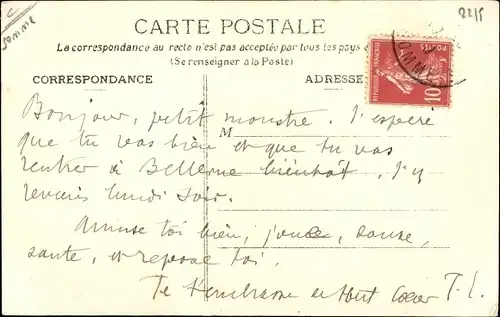 Somme
2215
CARTE POSTALE
La correspondance au recto n'est pas acceptée par tous les pays
(Se renseigner à la Poste)
CORRESPONDANCE
ADRESSE
REPUBLIQUE FRANÇAISE
POSTES
10
M
Bonjour, petit monstre. J'espère
que tu vas bien et que tu vas
rentrer à bientôt. J'y
reviens lundi soir.
Amuse toi bien, joue, danse,
saute, et repose toi.
Te tout coeur T.L.